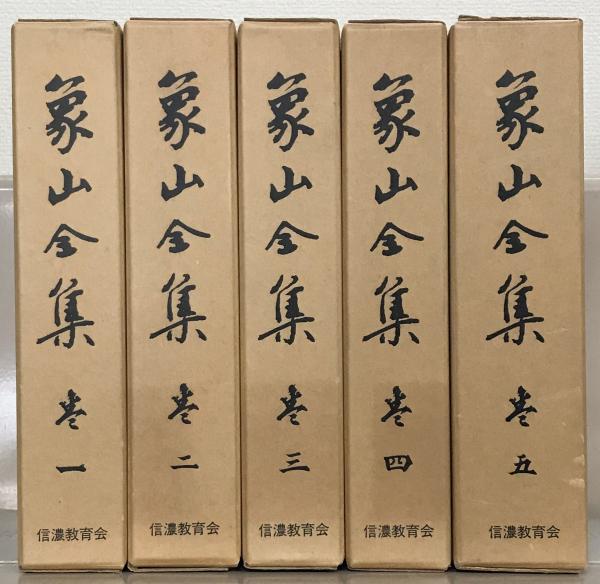 象山全集 巻一
信濃教育会
象山全集 巻二
信濃教育会
象山全集 巻三
信濃教育会
象山全集 巻四
信濃教育会
象山全集 巻五
信濃教育会